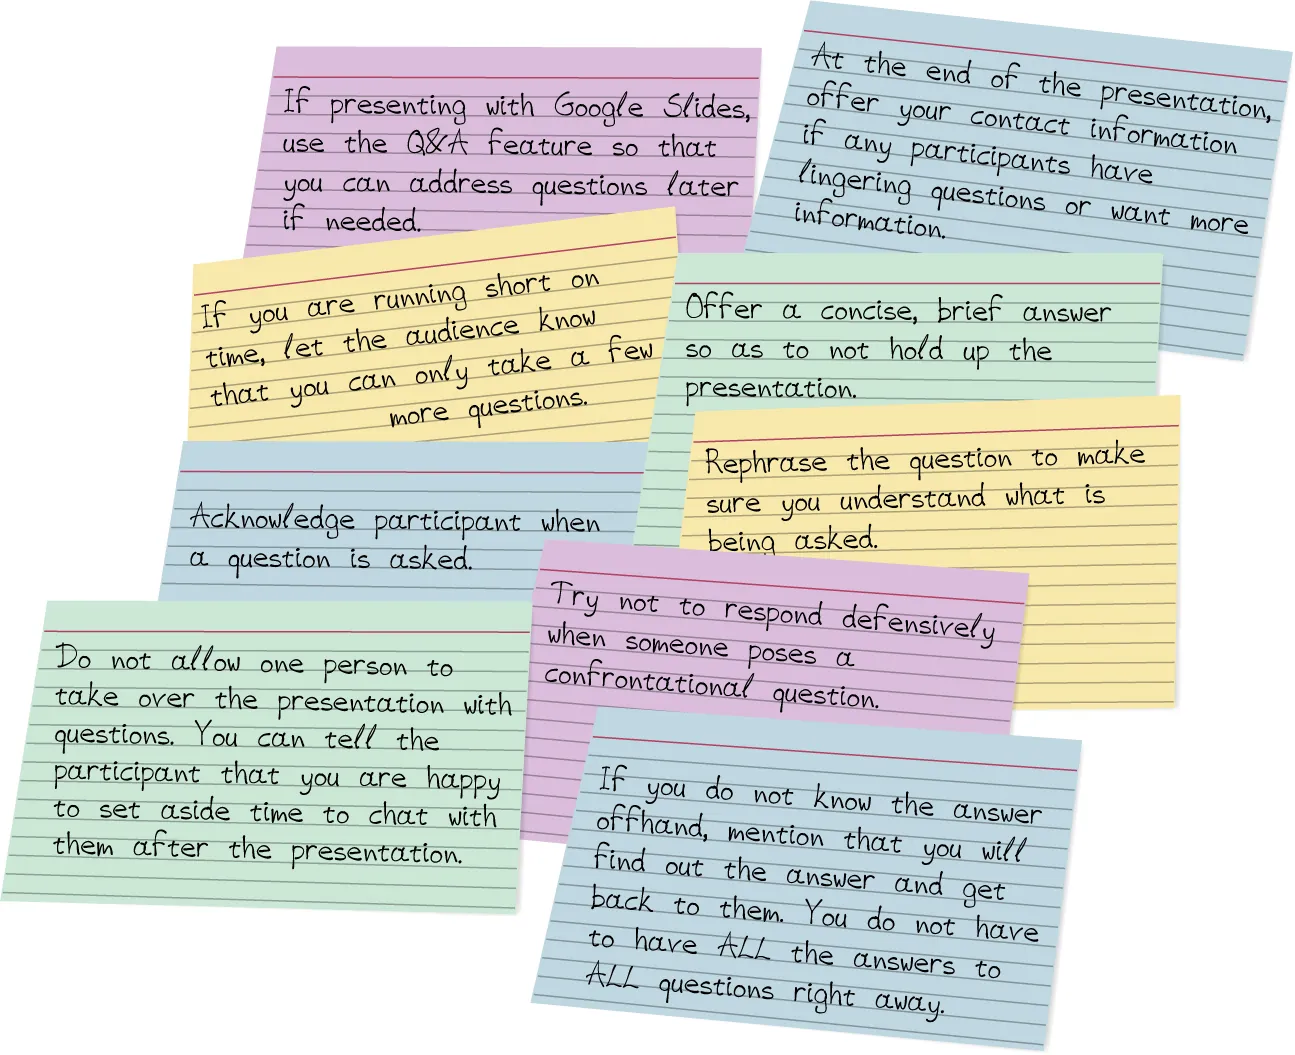 If presenting with Google Slides,
use the Q&A feature so that
you can address questions later
if needed.
At the end of the presentation,
offer your contact information
if any participants have
lingering questions or want more
information.
If you are running short on
time, let the audience know
that you can only take a few
more questions.
Offer a concise, brief answer
so as to not hold up the
presentation.
Rephrase the question to make
sure you understand what is
being asked.
Acknowledge participant when
a question is asked.
Try not to respond defensively
when someone poses a
confrontational question.
Do not allow one person to
take over the presentation with
questions. You can tell the
participant that you are happy
to set aside time to chat with
them after the presentation.
If you do not know the answer
offhand, mention that you will
find out the answer and get
back to them. You do not have
to have ALL the answers to
ALL questions right away.